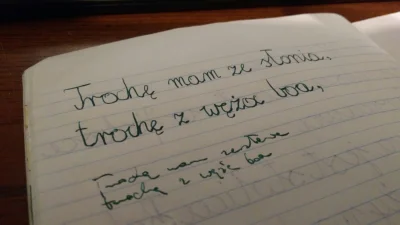 Trochę mam ze słonia,
trochę z węża boa,
Trochę mam ze słonia
trochę z węża boa